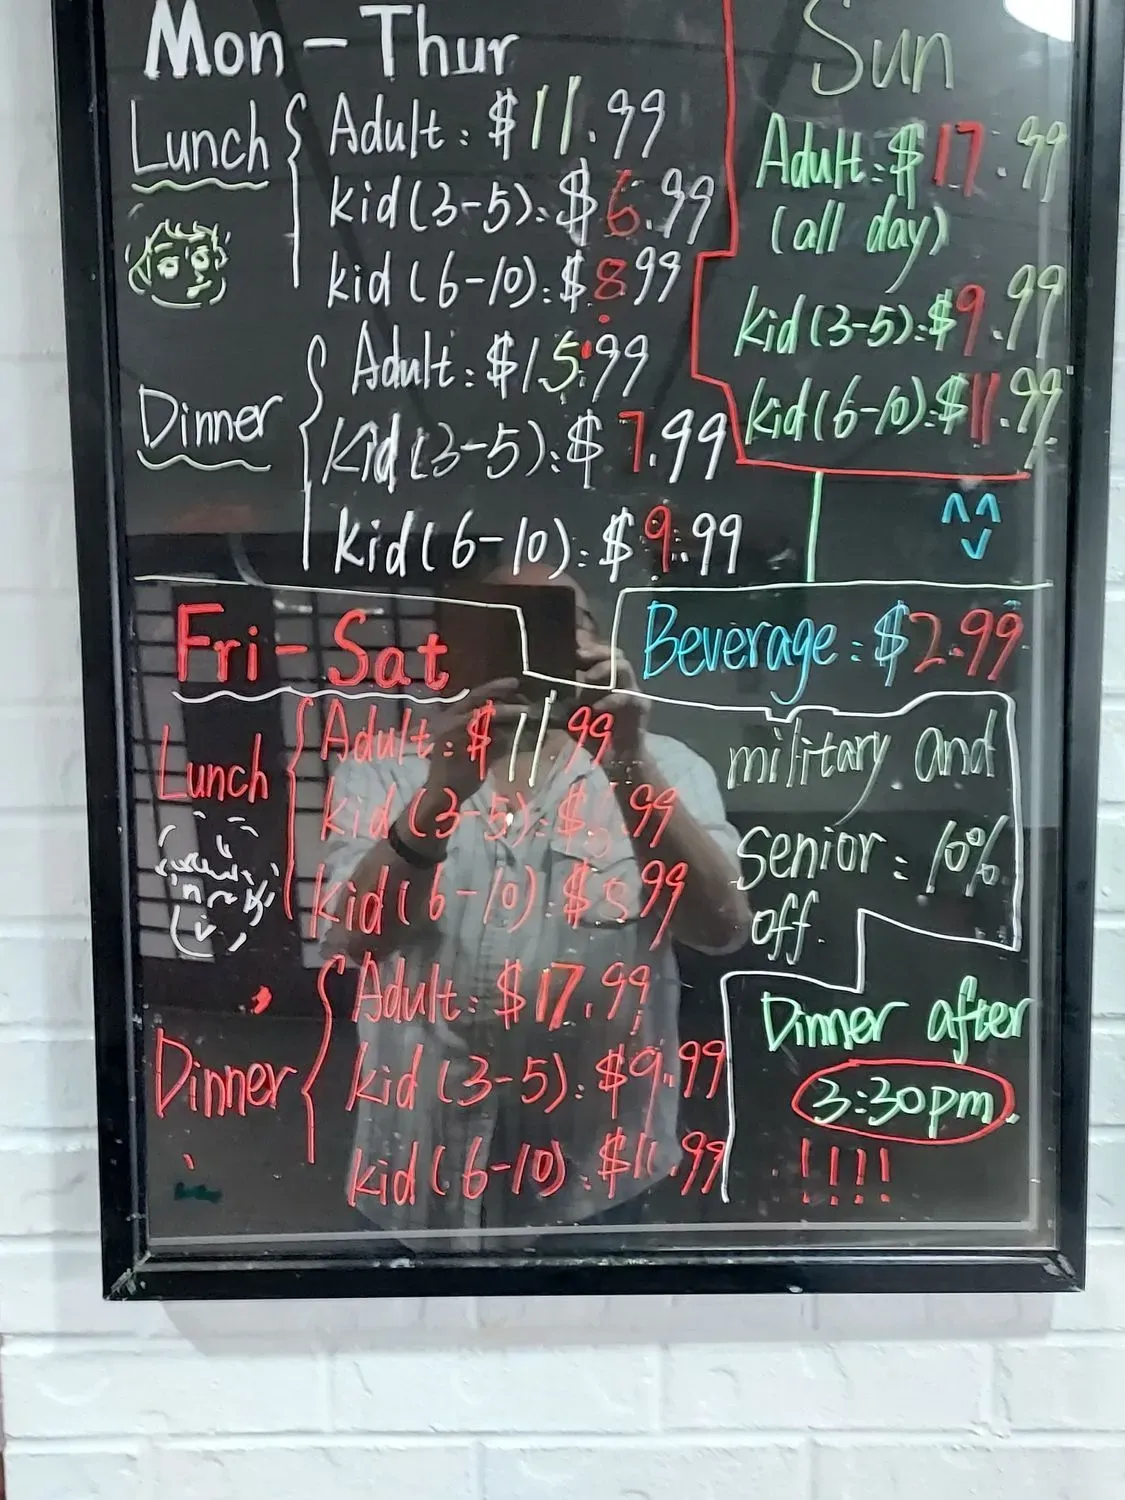 Mon - Thur
Lunch
Adult: $11.99
kid (3-5): $6.99
kid (6-10): $8.99
Dinner
Adult: $15.99
kid (3-5): $7.99
kid (6-10): $9.99
Sun
Adult: $17.99
(all day)
kid (3-5): $9.99
kid (6-10): $11.99
Beverage: $2.99
Fri - Sat
Lunch
Adult: $11.99
kid (3-5): $
kid (6-10): $
Dinner
Adult: $17.99
kid (3-5): $9.99
kid (6-10): $11.99
military and
Senior: 10%
off.
Dinner after
3:30pm.
!!!!